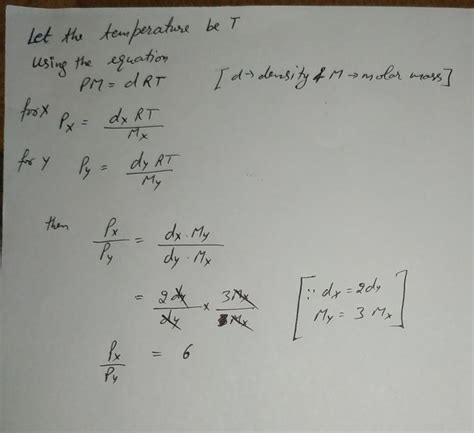 Let the temperature be T
Using the equation
PM = dRT [d→density & M→molar mass]
for X Px = dx RT / Mx
for Y Py = dy RT / My
then Px / Py = dx . My / dy . Mx
= 2dy / dy × 3Mx / Mx [∵ dx = 2dy
My = 3 Mx]
Px / Py = 6